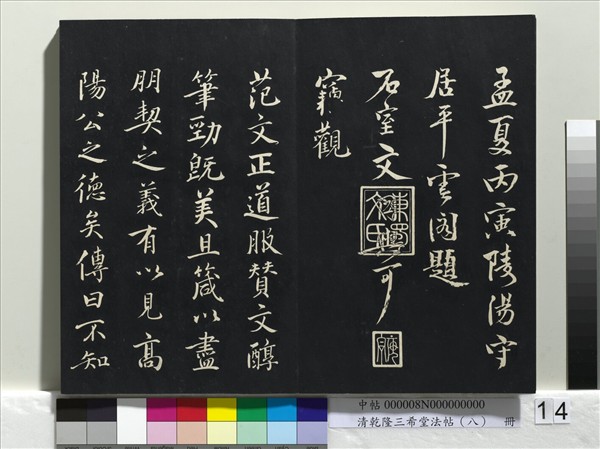 孟夏丙寅陵陽守
居平雲閣題
石室文
與可
寳觀
范文正道服赞文醇
筆勁既美且箴以盡
朋契之義有以見高
陽公之德矣傳曰不知
中帖 000008N000000000
清乾隆三希堂法帖（八） 冊
14